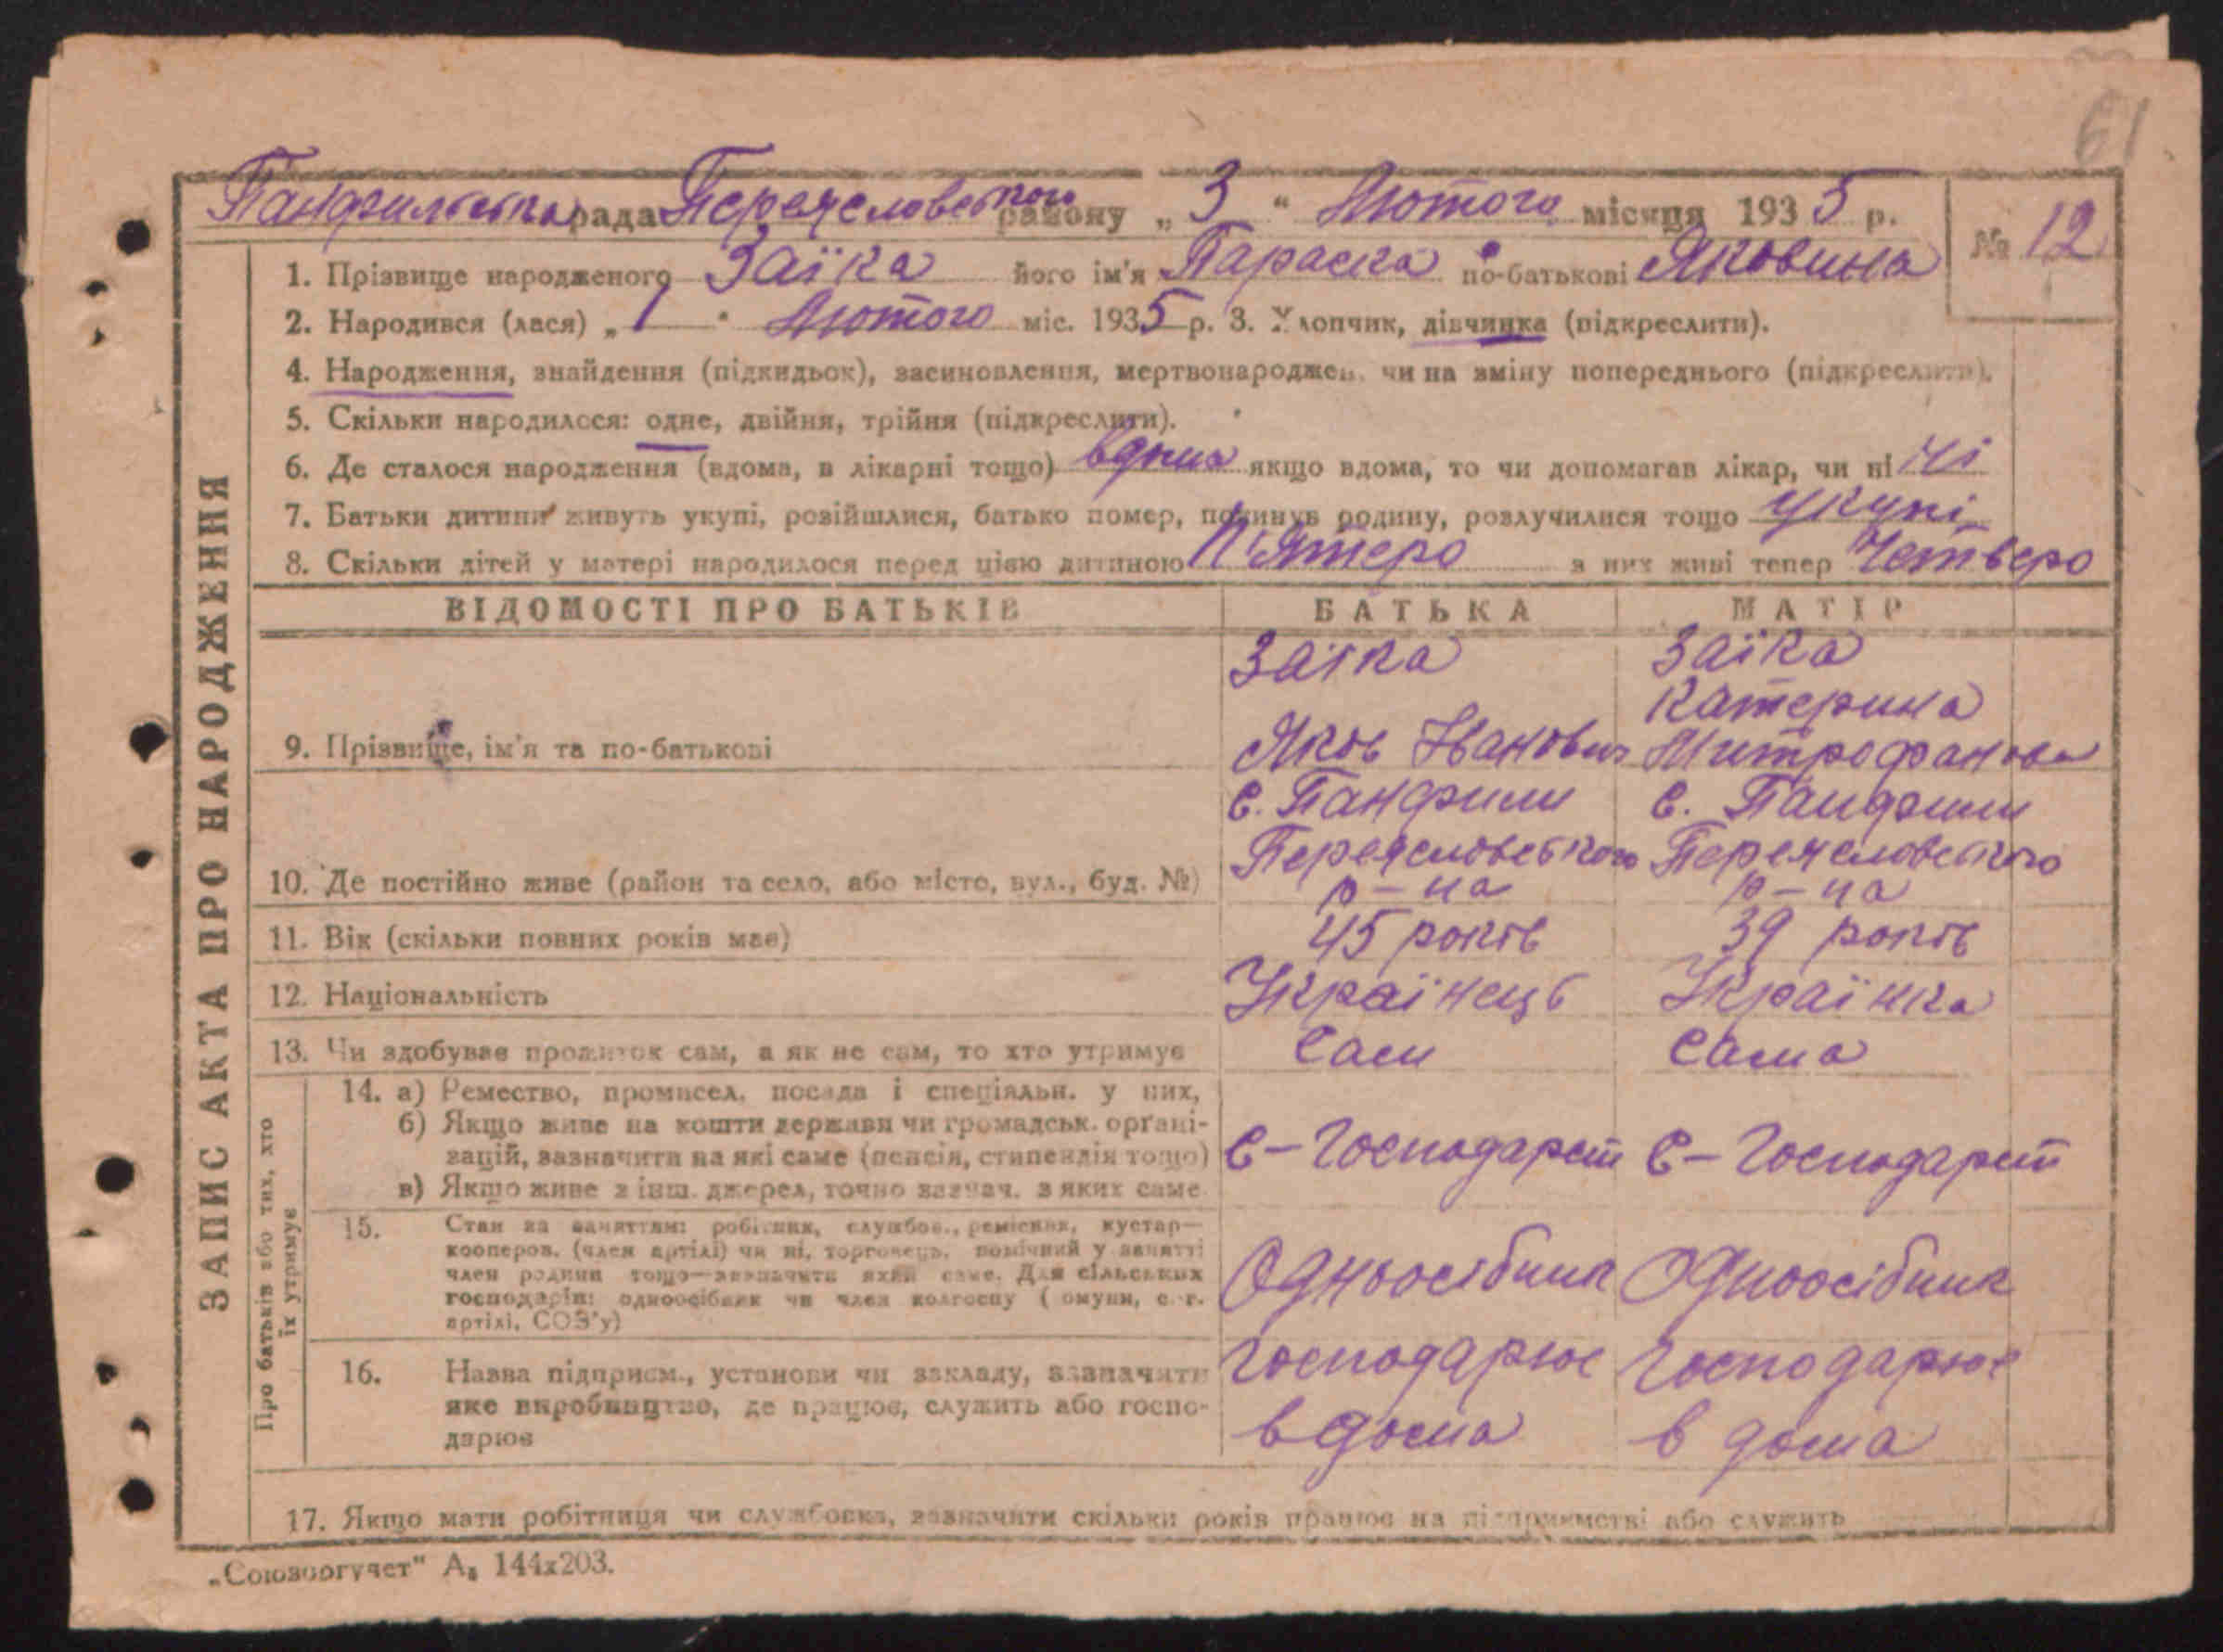 61
Панфильська рада Переяславського району „ 3 “ Лютого місяця 1935 р.
№ 12
1. Прізвище народженого Заїка його ім'я Параска по-батькові Яковина
2. Народився (лася) „ 1 " Лютого міс. 1935 р. 3. Хлопчик, дівчинка (підкреслити).
4. Народження, знайдення (підкидьок), засиновлення, мертвонароджен. чи на зміну попереднього (підкреслити).
5. Скільки народилося: одне, двійня, трійня (підкреслити).
6. Де сталося народження (вдома, в лікарні тощо) вдома якщо вдома, то чи допомагав лікар, чи ні ні
7. Батьки дитини живуть укупі, розійшлися, батько помер, покинув родину, розлучилися тощо укупі
8. Скільки дітей у матері народилося перед цією дитиною П'ятеро з них живі тепер Четверо
ВІДОМОСТІ ПРО БАТЬКІВ БАТЬКА МАТІР
Заїка Заїка
Катерина
9. Прізвище, ім'я та по-батькові Яков Іванович Митрофанова
с. Панфили с. Панфили
Переяславського Переяславського
10. Де постійно живе (район та село, або місто, вул., буд. №) р-на р-на
11. Вік (скільки повних років має) 45 років 39 років
12. Національність Українець Українка
13. Чи здобуває прожиток сам, а як не сам, то хто утримує Сам Сама
14. а) Ремество, промисел, посада і спеціяльн. у них,
б) Якщо живе на кошти держави чи громадськ. орґані-
зацій, зазначити на які саме (пенсія, стипендія тощо) С-Господарст С-Господарст
в) Якщо живе з інш. джерел, точно зазнач. з яких саме
15. Стан за заняттям: робітник, службов., ремісник, кустар—
кооперов. (член артілі) чи ні, торговець, помічний у занятті
член родини тощо—зазначити який саме. Для сільських
господарів: одноосібник чи член колгоспу ( омуни, с.-г.
артілі, СОЗ'у)
Одноосібник Одноосібник
16. Назва підприєм., установи чи закладу, зазначити Господарює Господарює
яке виробництво, де працює, служить або госпо-
дарює
вдома в дома
17. Якщо мати робітниця чи службовка, зазначити скільки років працює на підприємстві або служить
„Союзоргучет" А₅ 144x203.
ЗАПИС АКТА ПРО НАРОДЖЕННЯ
Про батьків або тих, хто
їх утримує